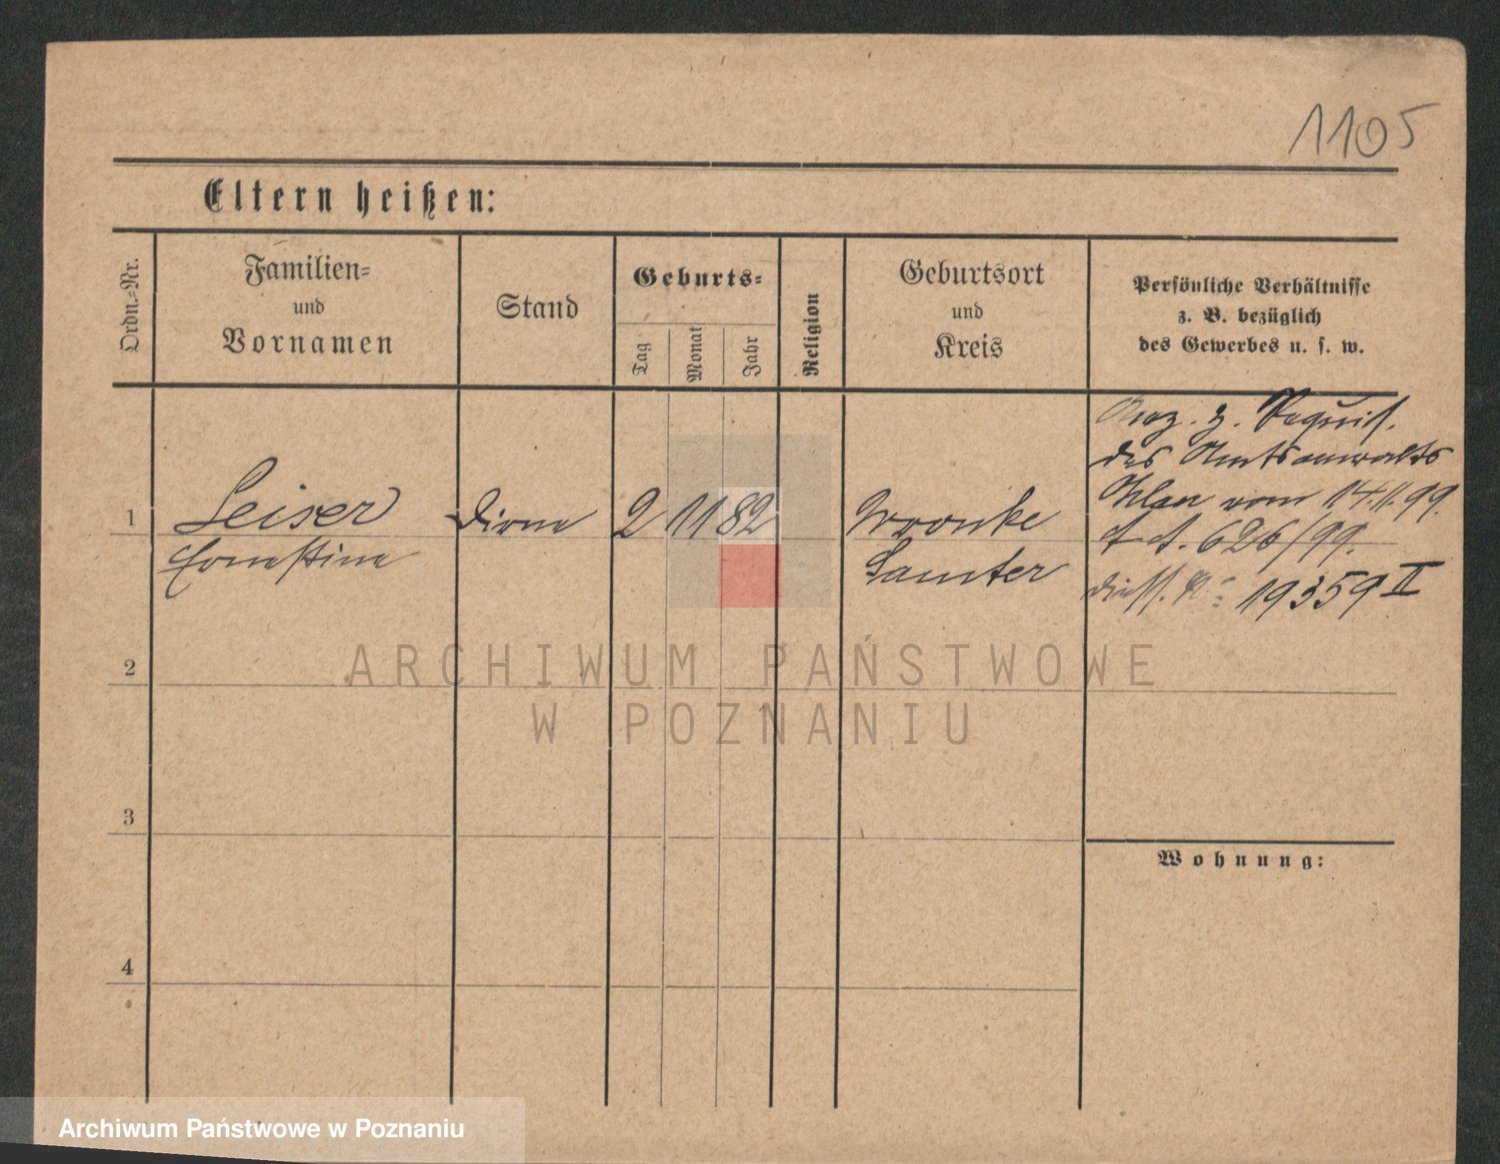 1105
Eltern heißen:
Ordn.=Nr.
Familien=
und
Vornamen
Stand
Geburts=
Tag
Monat
Jahr
Religion
Geburtsort
und
Kreis
Persönliche Verhältnisse
z. B. bezüglich
des Gewerbes u. s. w.
1
Leiser
Ernestine
Dirne
2
11
82
Wronke
Samter
z. Requis.
des Amtsanwalts
vom 14.11.99.
626/99.
19359 II
2
3
4
Wohnung:
ARCHIWUM PAŃSTWOWE
W POZNANIU
Archiwum Państwowe w Poznaniu